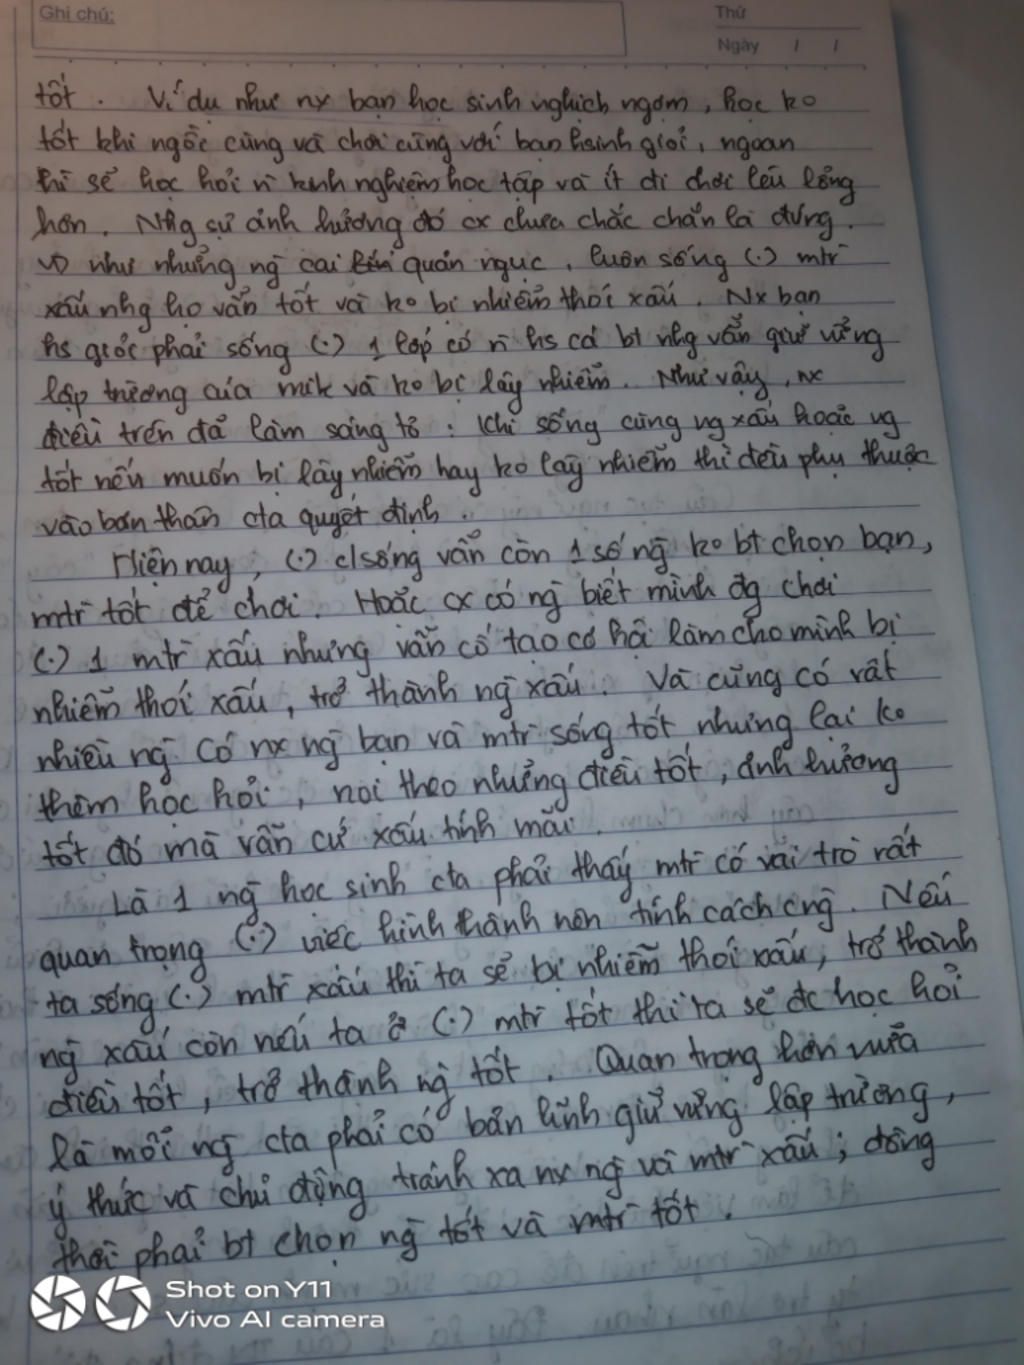 Ghi chú:
Thứ
Ngày / /
tốt. Ví dụ như nx bạn học sinh nghịch ngợm, học ko
tốt khi ngồi cùng và chơi cùng với bạn hsinh giỏi, ngoan
thì sẽ học hỏi n kinh nghiệm học tập và ít đi chơi lêu lổng
hơn. Nhg sự ảnh hưởng đó cx chưa chắc chắn là đúng.
VD như những ng cai quản ngục, luôn sống (.) mtr
xấu nhg họ vẫn tốt và ko bị nhiễm thói xấu. Nx bạn
hs giỏi phải sống (.) 1 lớp có n hs cá bt nhg vẫn giữ vững
lập trường của mik và ko bị lây nhiễm. Như vậy, nx
điều trên đã làm sáng tỏ: Khi sống cùng ng xấu hoặc ng
tốt nếu muốn bị lây nhiễm hay ko lây nhiễm thì đều phụ thuộc
vào bản thân cta quyết định.
Hiện nay, (.) c/sống vẫn còn 1 số ng ko bt chọn bạn,
mtr tốt để chơi. Hoặc cx có ng biết mình đg chơi
(.) 1 mtr xấu nhưng vẫn cố tạo cơ hội làm cho mình bị
nhiễm thói xấu, trở thành ng xấu. Và cũng có rất
nhiều ng có nx ng bạn và mtr sống tốt nhưng lại ko
thèm học hỏi, noi theo những điều tốt, ảnh hưởng
tốt đó mà vẫn cứ xấu tính mãi.
Là 1 ng học sinh cta phải thấy mtr có vai trò rất
quan trọng (.) việc hình thành nên tính cách cng. Nếu
ta sống (.) mtr xấu thì ta sẽ bị nhiễm thói xấu, trở thành
ng xấu còn nếu ta ở (.) mtr tốt thì ta sẽ đc học hỏi
điều tốt, trở thành ng tốt. Quan trọng hơn nữa
là mỗi ng cta phải có bản lĩnh giữ vững lập trường,
ý thức và chủ động tránh xa nx ng và mtr xấu; đồng
thời phải bt chọn ng tốt và mtr tốt.
Shot on Y11
Vivo AI camera